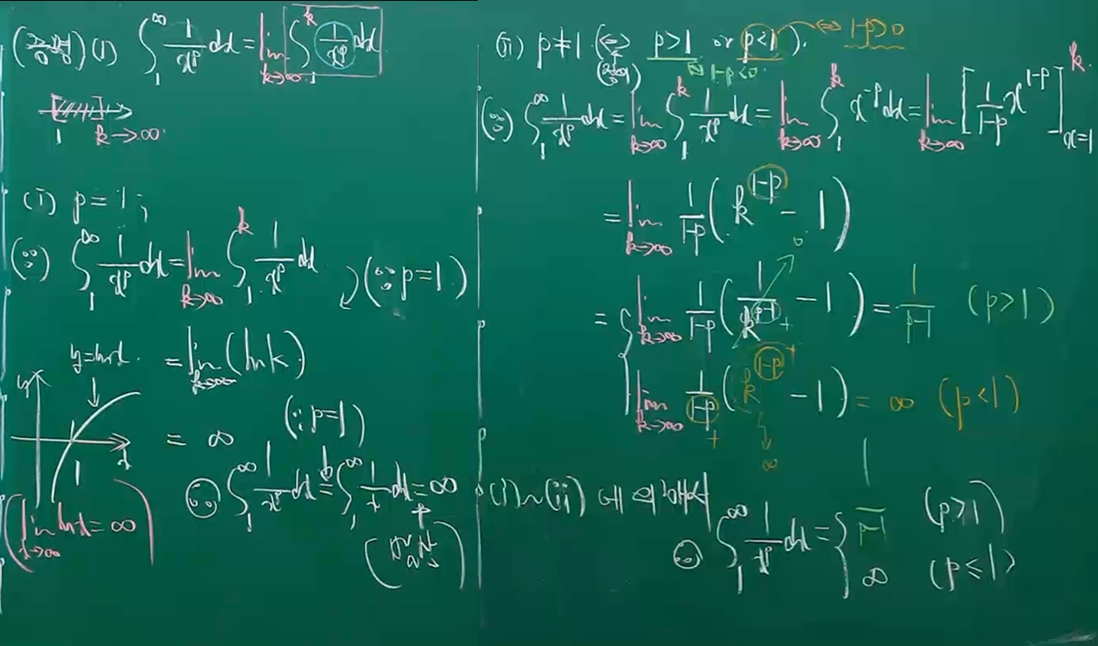 (증명) (1) ∫₁^∞ 1/xᵖ dx = lim_{k→∞} ∫₁^k 1/xᵖ dx
1 k→∞
(i) p=1;
(∵) ∫₁^∞ 1/xᵖ dx = lim_{k→∞} ∫₁^k 1/xᵖ dx
(∵ p=1)
y=lnx = lim_{k→∞} (ln k)
y
= ∞ (∵ p=1)
1 x
(lim_{x→∞} lnx = ∞)
∴ ∫₁^∞ 1/xᵖ dx = ∫₁^∞ 1/x dx = ∞
(발산)
(ii) p≠1 (⇔ p>1 or p<1). ⇔ 1-p>0
⇔ 1-p<0
(∵) ∫₁^∞ 1/xᵖ dx = lim_{k→∞} ∫₁^k 1/xᵖ dx = lim_{k→∞} ∫₁^k x⁻ᵖ dx = lim_{k→∞} [1/(1-p) x^{1-p}]_{x=1}^k
= lim_{k→∞} 1/(1-p) (k^{1-p} - 1)
= { lim_{k→∞} 1/(1-p) (1/k^{p-1} - 1) = 1/(p-1) (p>1)
0
+
lim_{k→∞} 1/(1-p) (k^{1-p} - 1) = ∞ (p<1)
+ +
∞
(i)~(ii)에 의하여
∴ ∫₁^∞ 1/xᵖ dx = { 1/(p-1) (p>1)
∞ (p≤1)